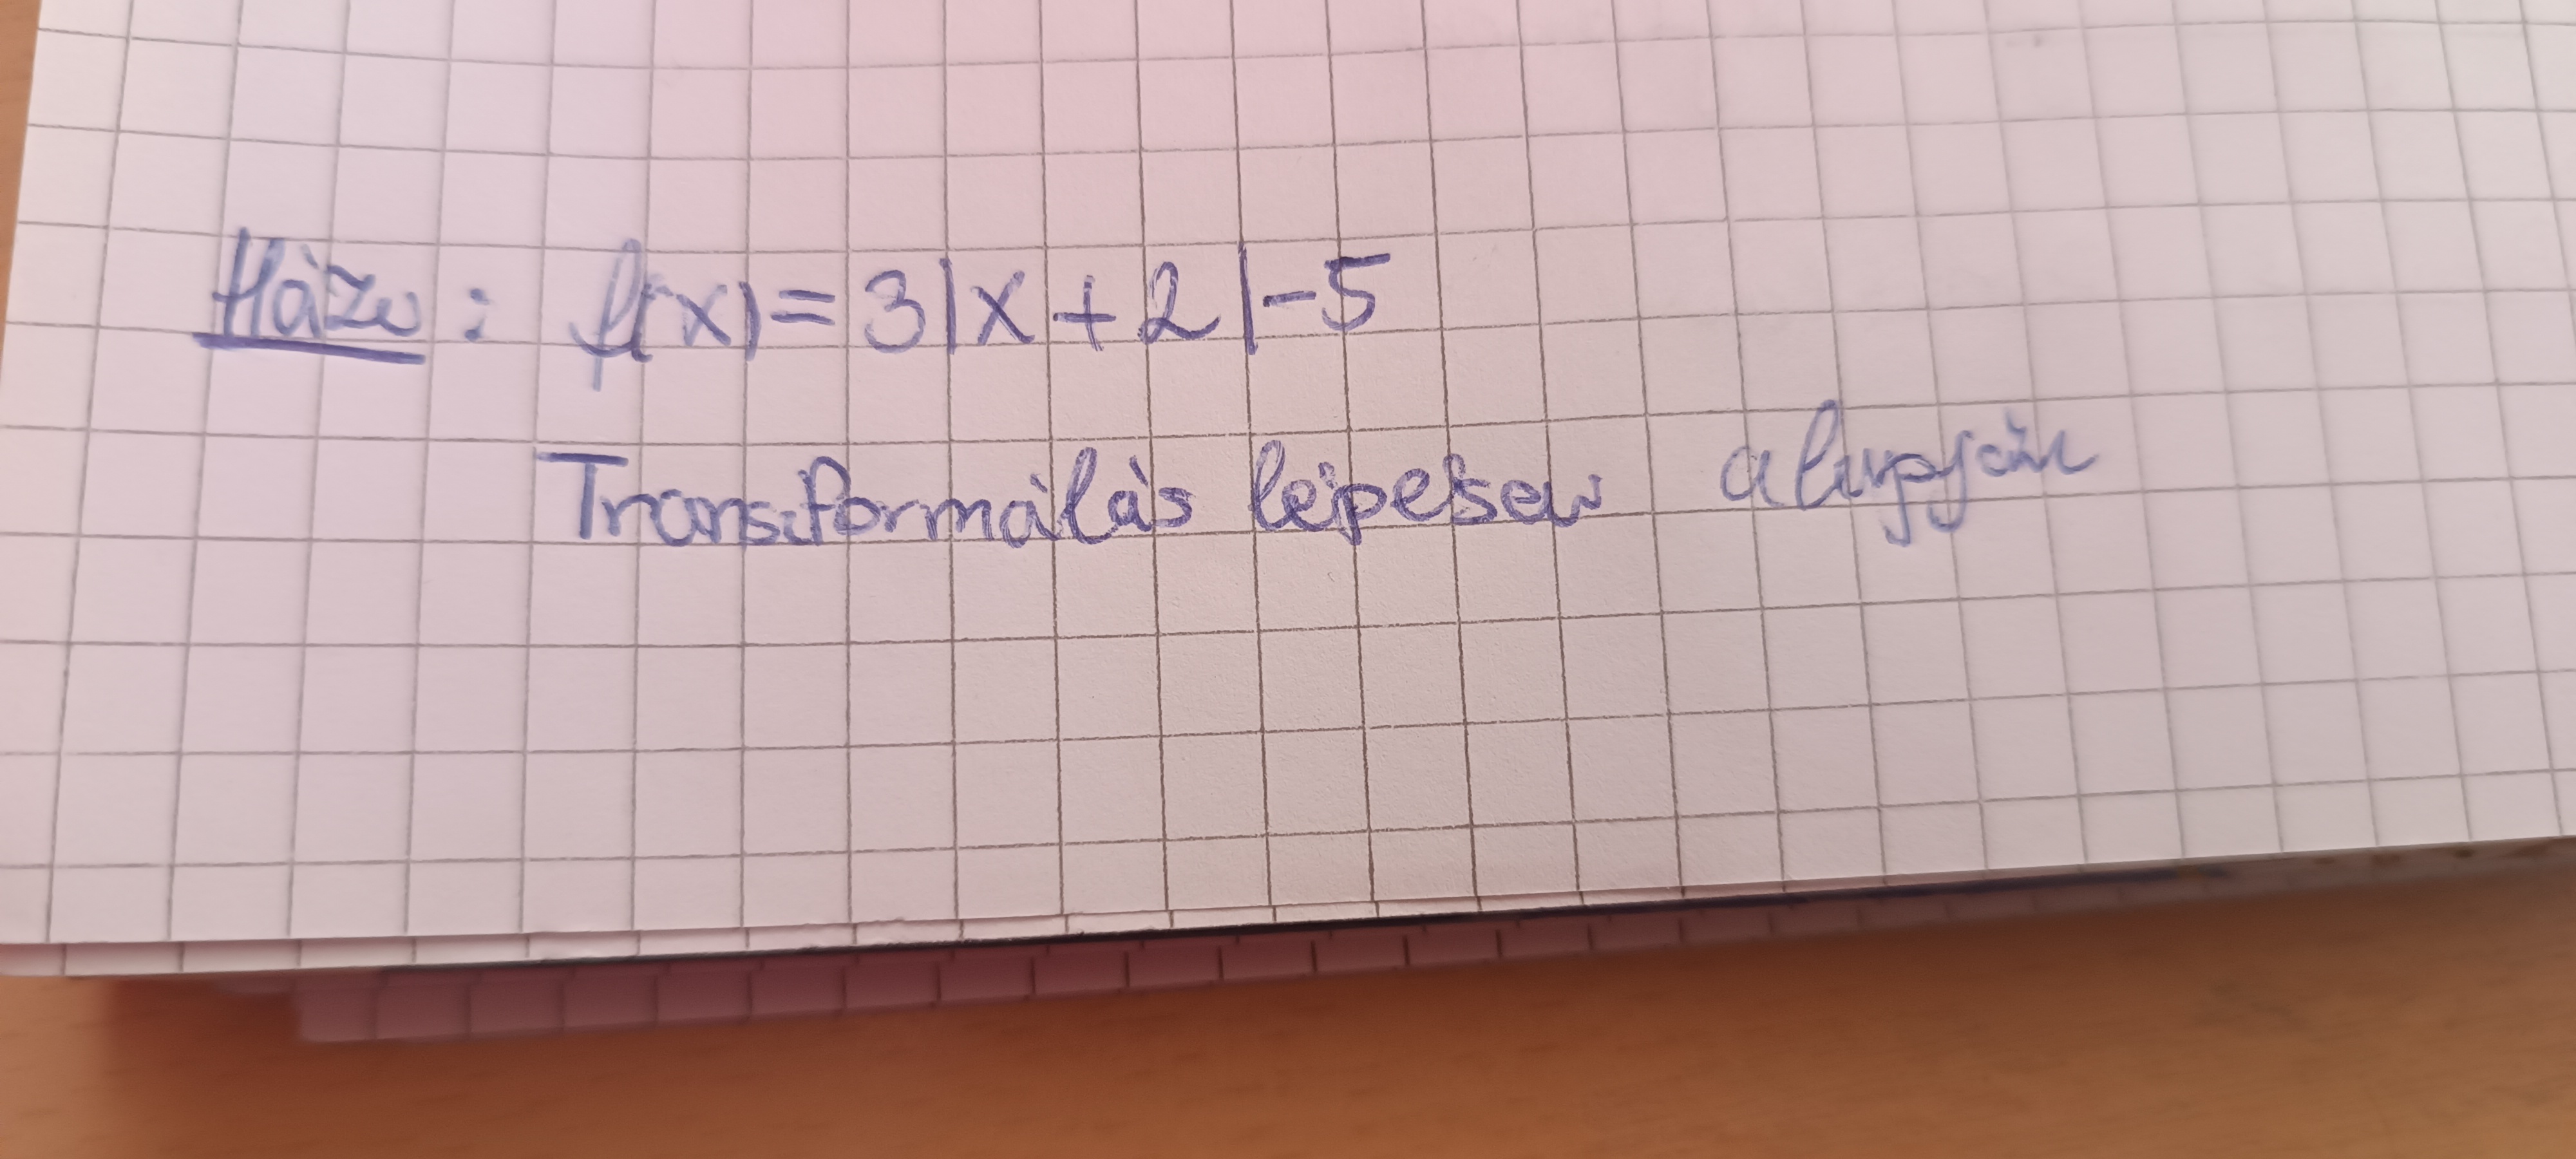 Házi: f(x)=3|x+2|-5
Transzformálás lépései alapján